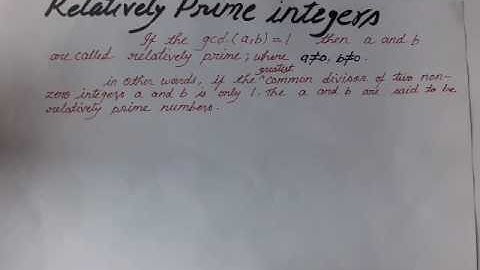 Relatively Prime integers
If the gcd (a,b)=1 then a and b
are called relatively prime; where a≠0, b≠0.
in other words, if the greatest common divisor of two non-
zero integers a and b is only 1. The a and b are said to be
relatively prime numbers.